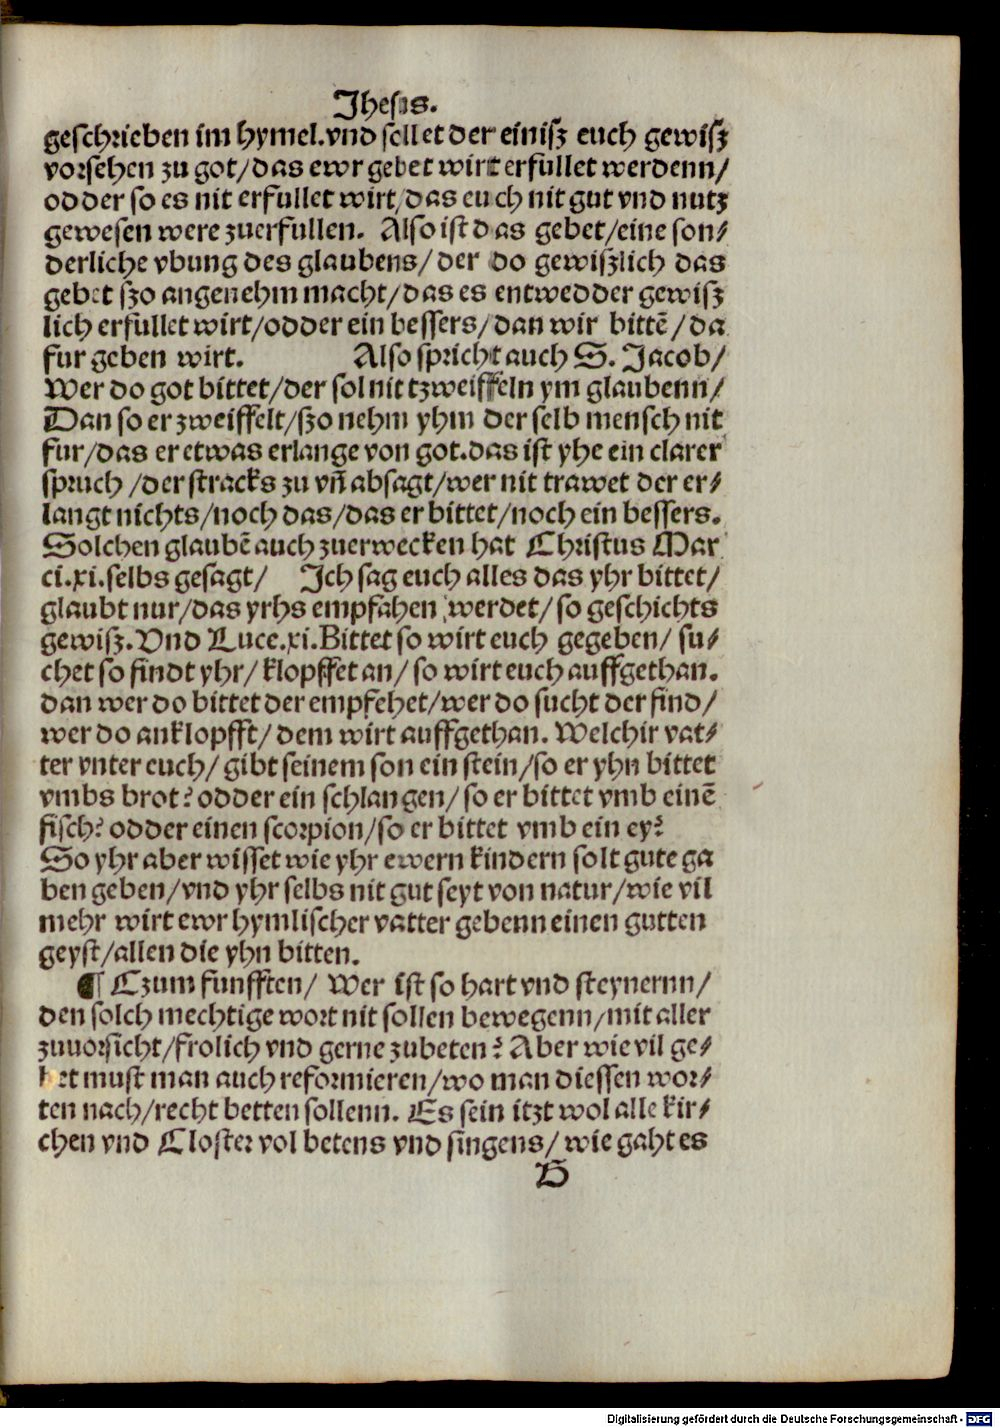 Jhesus.
geschrieben im hymel.vnd sellet der einisz euch gewisz
vorsehen zu got/das ewr gebet wirt erfullet werdenn/
odder so es nit erfullet wirt/das euch nit gut vnd nutz
gewesen were zuerfullen. Also ist das gebet/eine son⸗
derliche vbung des glaubens/der do gewiszlich das
gebet szo angenehm macht/das es entwedder gewisz
lich erfullet wirt/odder ein bessers/dan wir bittē/da
fur geben wirt. Also spricht auch S. Jacob/
Wer do got bittet/der sol nit tzweiffeln ym glaubenn/
Dan so er zweiffelt/szo nehm yhm der selb mensch nit
fur/das er etwas erlange von got.das ist yhe ein clarer
spruch/der stracks zu vñ absagt/wer nit trawet der er⸗
langt nichts/noch das/das er bittet/noch ein bessers.
Solchen glaubē auch zuerwecken hat Christus Mar
ci.xi.selbs gesagt/ Ich sag euch alles das yhr bittet/
glaubt nur/das yrhs empfahen werdet/so geschichts
gewisz.Vnd Luce.xi.Bittet so wirt euch gegeben/ su⸗
chet so findt yhr/klopffet an/so wirt euch auffgethan.
dan wer do bittet der empfehet/wer do sucht der find/
wer do anklopfft/dem wirt auffgethan. Welchir vat⸗
ter vnter euch/gibt seinem son ein stein/so er yhn bittet
vmbs brot? odder ein schlangen/so er bittet vmb einē
fisch? odder einen scorpion/so er bittet vmb ein ey?
So yhr aber wisset wie yhr ewern kindern solt gute ga
ben geben/vnd yhr selbs nit gut seyt von natur/wie vil
mehr wirt ewr hymlischer vatter gebenn einen gutten
geyst/allen die yhn bitten.
¶ Czum funfften/ Wer ist so hart vnd steynernn/
den solch mechtige wort nit sollen bewegenn/mit aller
zuuorsicht/frolich vnd gerne zubeten? Aber wie vil ge⸗
bet must man auch reformieren/wo man diessen wor⸗
ten nach/recht betten sollenn. Es sein itzt wol alle kir⸗
chen vnd Closter vol betens vnd singens/wie gaht es
B
Digitalisierung gefördert durch die Deutsche Forschungsgemeinschaft - DFG